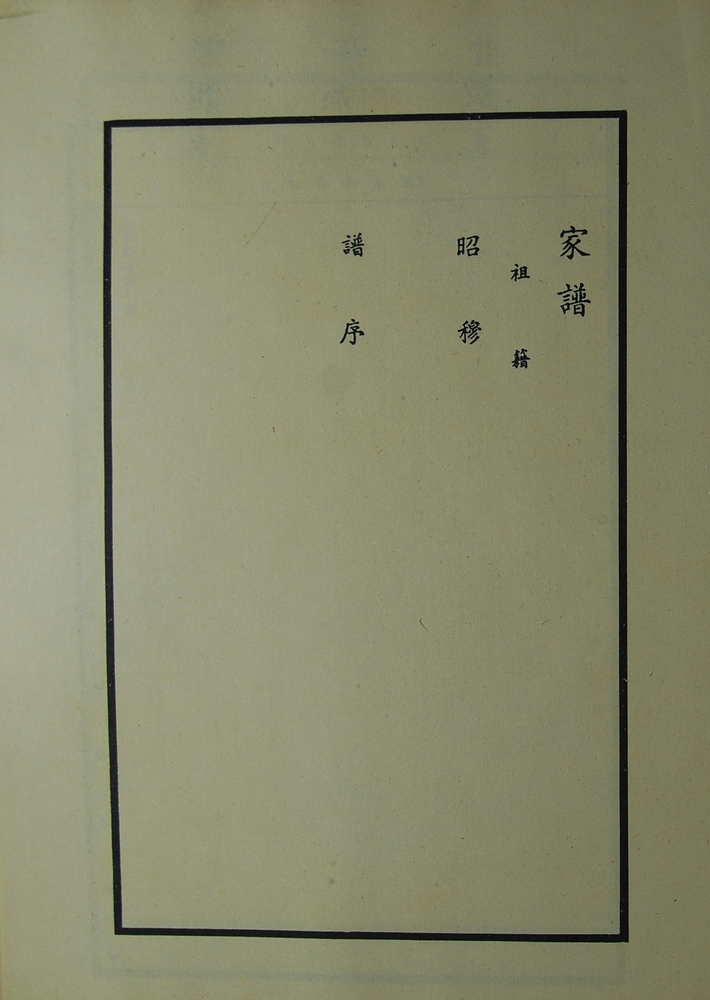 家譜
祖籍
昭穆
譜序